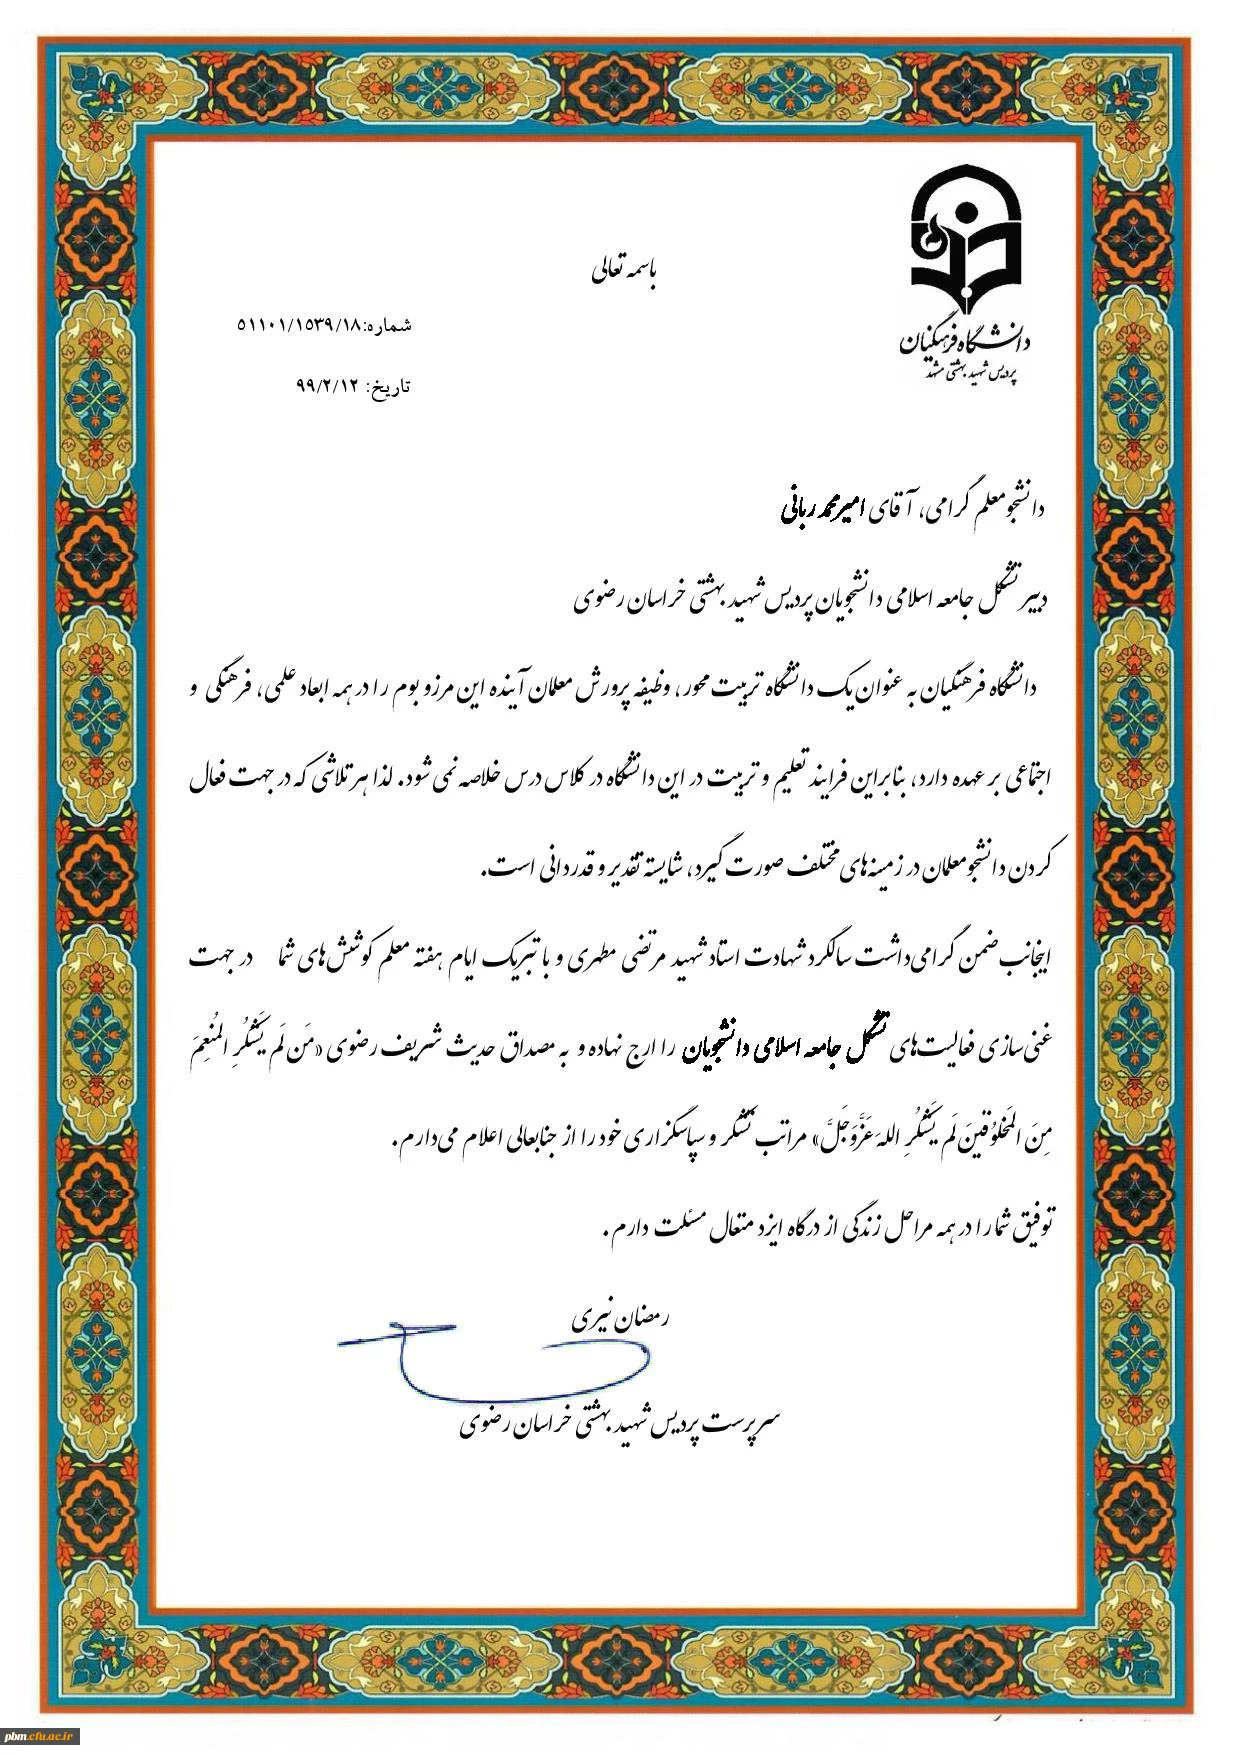 باسمه تعالی
دانشگاه فرهنگیان
پردیس شهید بهشتی مشهد
شماره:۵۱۱۰۱/۱۵۳۹/۱۸
تاریخ: ۹۹/۲/۱۲
دانشجومعلم گرامی، آقای امیرمحمد ربانی
دبیر تشکل جامعه اسلامی دانشجویان پردیس شهید بهشتی خراسان رضوی
دانشگاه فرهنگیان به عنوان یک دانشگاه تربیت محور، وظیفه پرورش معلمان آینده این مرزوبوم را در همه ابعاد علمی، فرهنگی و
اجتماعی بر عهده دارد، بنابراین فرایند تعلیم و تربیت در این دانشگاه در کلاس درس خلاصه نمی شود. لذا هر تلاشی که در جهت فعال
کردن دانشجومعلمان در زمینه‌های مختلف صورت گیرد، شایسته تقدیر و قدردانی است.
اینجانب ضمن گرامی‌داشت سالگرد شهادت استاد شهید مرتضی مطهری و با تبریک ایام هفته معلم کوشش‌های شما در جهت
غنی‌سازی فعالیت‌های تشکل جامعه اسلامی دانشجویان را ارج نهاده و به مصداق حدیث شریف رضوی «مَن لَم یَشکُرِ المُنعِمَ
مِنَ المَخلوُقینَ لَم یَشکُرِ اللهَ عَزَّوَجَلَّ» مراتب تشکر و سپاسگزاری خود را از جنابعالی اعلام می‌دارم.
توفیق شما را در همه مراحل زندگی از درگاه ایزد متعال مسئلت دارم.
رمضان نیری
سرپرست پردیس شهید بهشتی خراسان رضوی
pbm.cfu.ac.ir